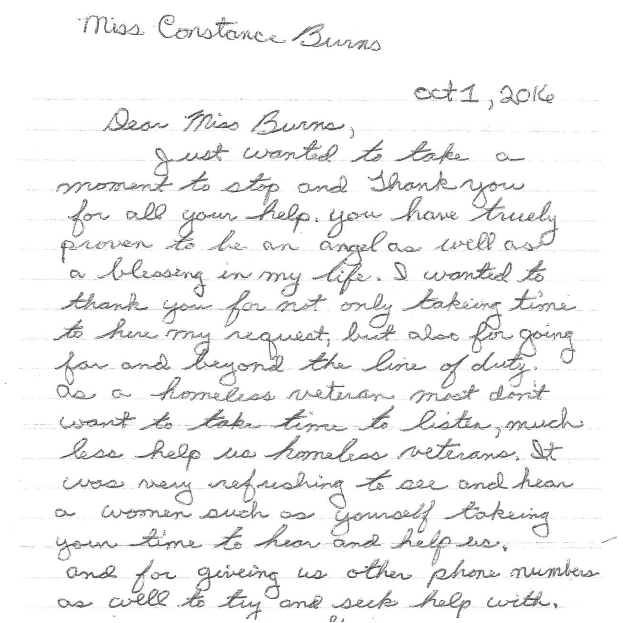 Miss Constance Burns
Oct 1, 2016
Dear Miss Burns,
Just wanted to take a
moment to stop and Thank you
for all your help. you have truely
proven to be an angel as well as
a blessing in my life. I wanted to
thank you for not only takeing time
to here my request, but also for going
far and beyond the line of duty.
as a homeless veteran most don't
want to take time to listen, much
less help us homeless veterans. It
was very refreshing to see and hear
a women such as yourself takeing
your time to hear and help us.
and for giveing us other phone numbers
as well to try and seek help with.